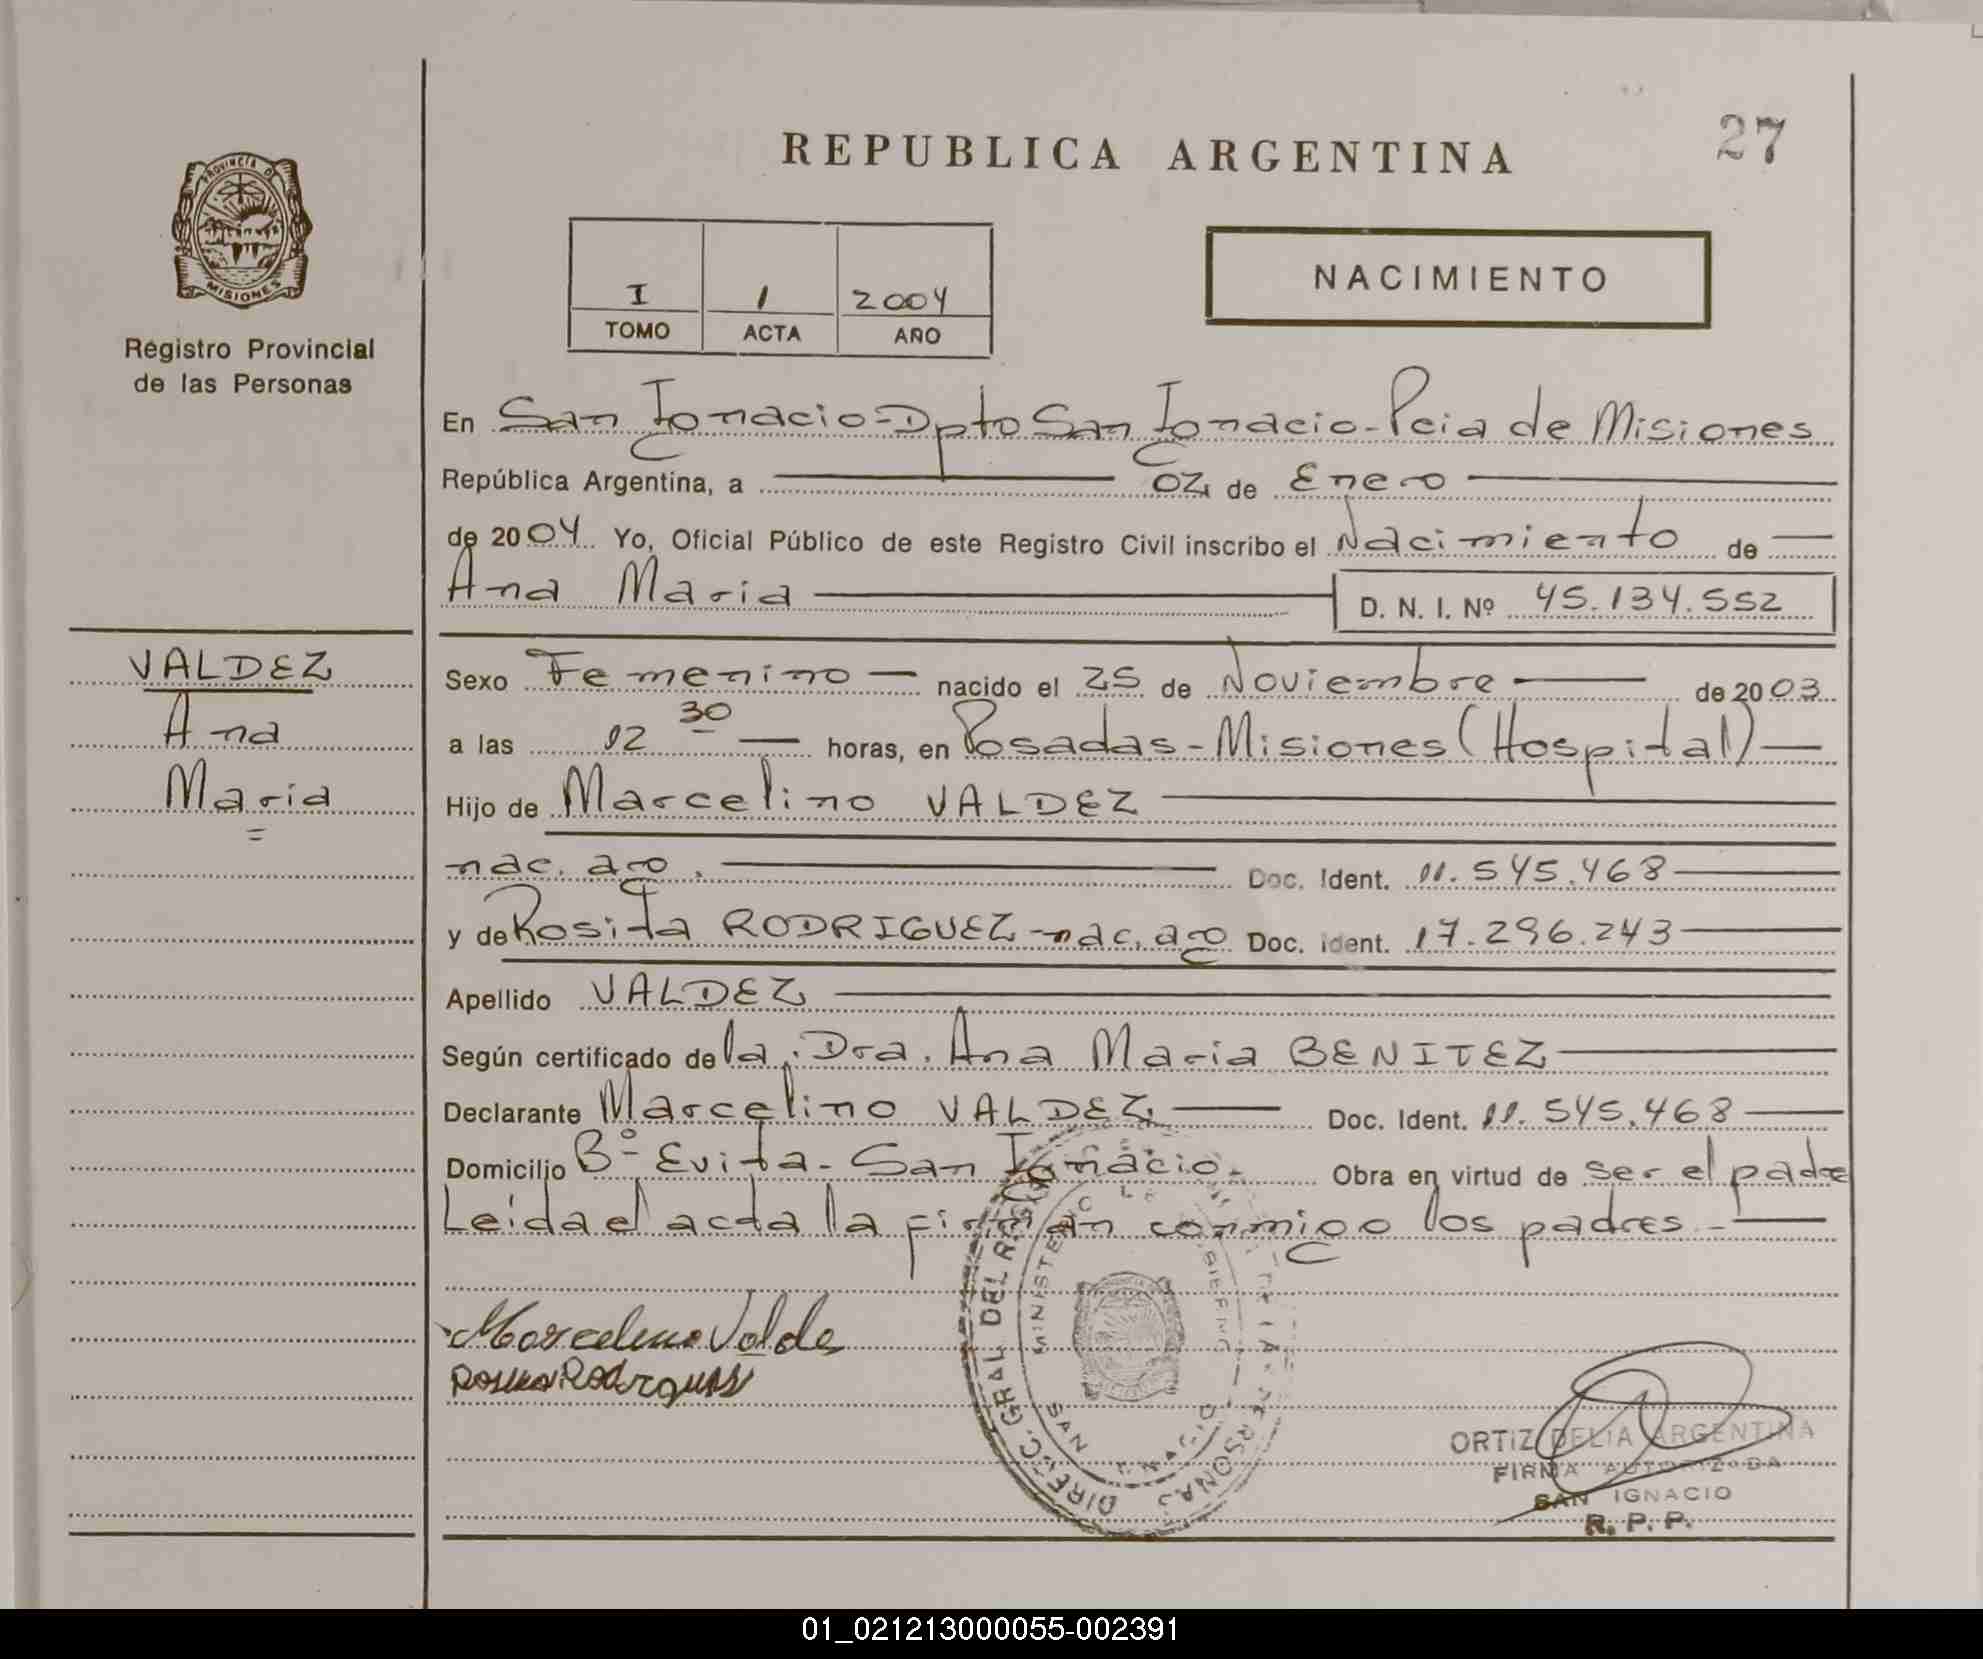 27
REPUBLICA ARGENTINA
NACIMIENTO
I 1 2004
TOMO ACTA AÑO
PROVINCIA D
MISIONES
Registro Provincial
de las Personas
En San Ignacio-Dpto San Ignacio-Pcia de Misiones
República Argentina, a 02 de Enero
de 2004 Yo, Oficial Público de este Registro Civil inscribo el Nacimiento de
Ana Maria D. N. I. Nº 45.134.552
VALDEZ
Ana
Maria
Sexo Femenino nacido el 25 de Noviembre de 2003
a las 12 30 horas, en Posadas-Misiones (Hospital)
Hijo de Marcelino VALDEZ
nac. arg. Doc. Ident. 11.545.468
y de Rosita RODRIGUEZ-nac. arg Doc. ident. 17.296.243
Apellido VALDEZ
Según certificado de la Dra. Ana Maria BENITEZ
Declarante Marcelino VALDEZ Doc. Ident. 11.545.468
Domicilio Bº Evita-San Ignacio. Obra en virtud de ser el padre
Leida el acta la firman conmigo los padres-
Marcelino Valde
DIRECC. GRAL DEL PERSONAS
MINISTERIO
SAN IGNACIO
ORTIZ DELIA ARGENTINA
FIRMA AUTORIZADA
SAN IGNACIO
R. P. P.
01_021213000055-002391